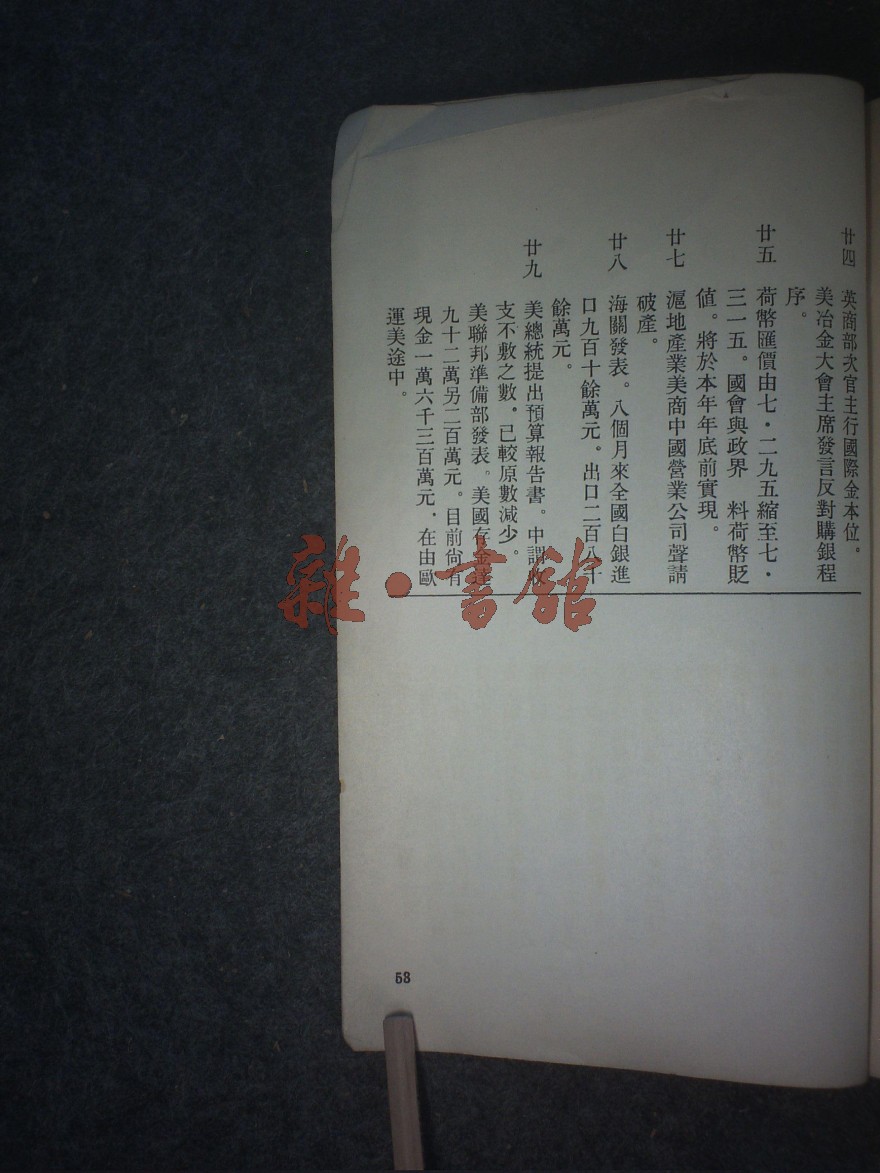 廿四　英商部次官主行國際金本位。
美冶金大會主席發言反對購銀程
序。
廿五　荷幣匯價由七・二九五縮至七・
三一五。國會與政界　料荷幣貶
值。將於本年年底前實現。
廿七　滬地產業美商中國營業公司聲請
破產。
廿八　海關發表。八個月來全國白銀進
口九百十餘萬元。出口二百八十
餘萬元。
廿九　美總統提出預算報告書。中謂收
支不敷之數。已較原數減少。
美聯邦準備部發表。美國存金達
九十二萬另二百萬元。目前尙有
現金一萬六千三百萬元，在由歐
運美途中。
58
雜・書館